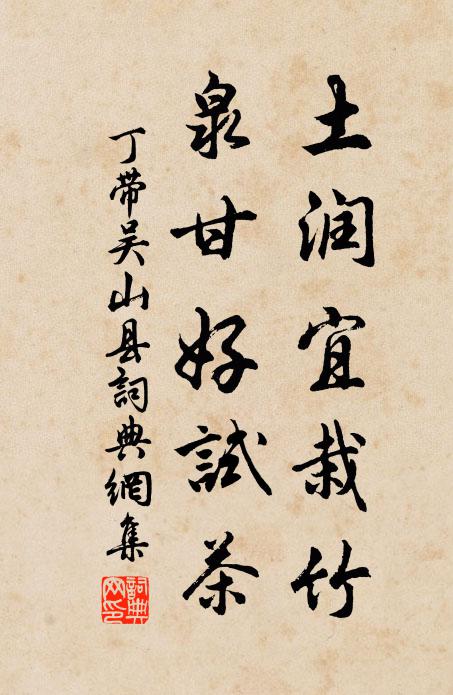 土润宜栽竹
泉甘好試茶
丁带吴山县詞典網集
詞典网印